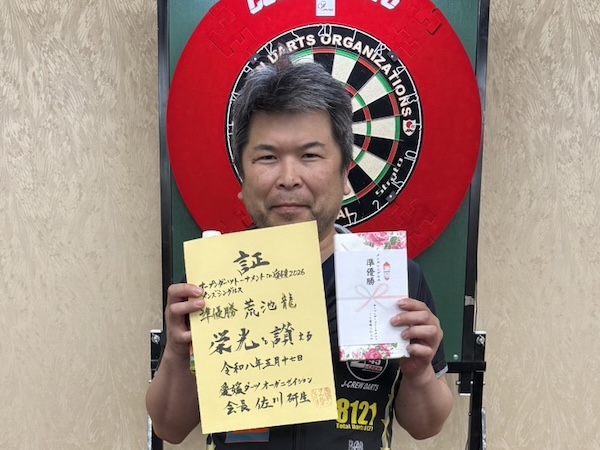 DARTS ORGANIZATIONS
証
オープンダーツトーナメント in 愛媛 2026
メンズシングルス
準優勝 荒池 龍
栄光を讃える
令和八年五月十七日
愛媛ダーツオーガニゼイション
会長 佐川 研生
準優勝
J-CREW DARTS
8121
Total Darts 8121